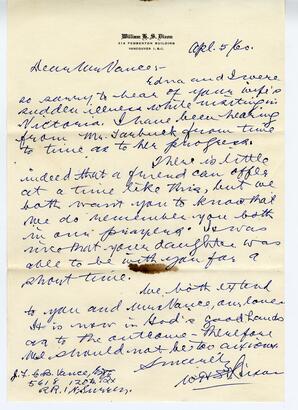 William H. S. Dixon
614 PEMBERTON BUILDING
VANCOUVER 1, B.C.
Apl. 5/60.
Dear Mr Vance,-
Edna and I were
so sorry to hear of your wife's
sudden illness while visiting in
Victoria. I have been hearing
from Mr. Tarbuck from time
to time as to her progress.
There is little
indeed that a friend can offer
at a time like this, but we
both want you to know that
we do remember you both
in our prayers. It was
nice that your daughter was
able to be with you for a
short time.
We both extend
to you and Mrs Vance, our love.
It is now in God's good hands
as to the outcome - therefore
we should not be too anxious.
Sincerely
W H S Dixon
J. F. C. B. Vance,
5618 120th
R.R. 1 N. Surrey.